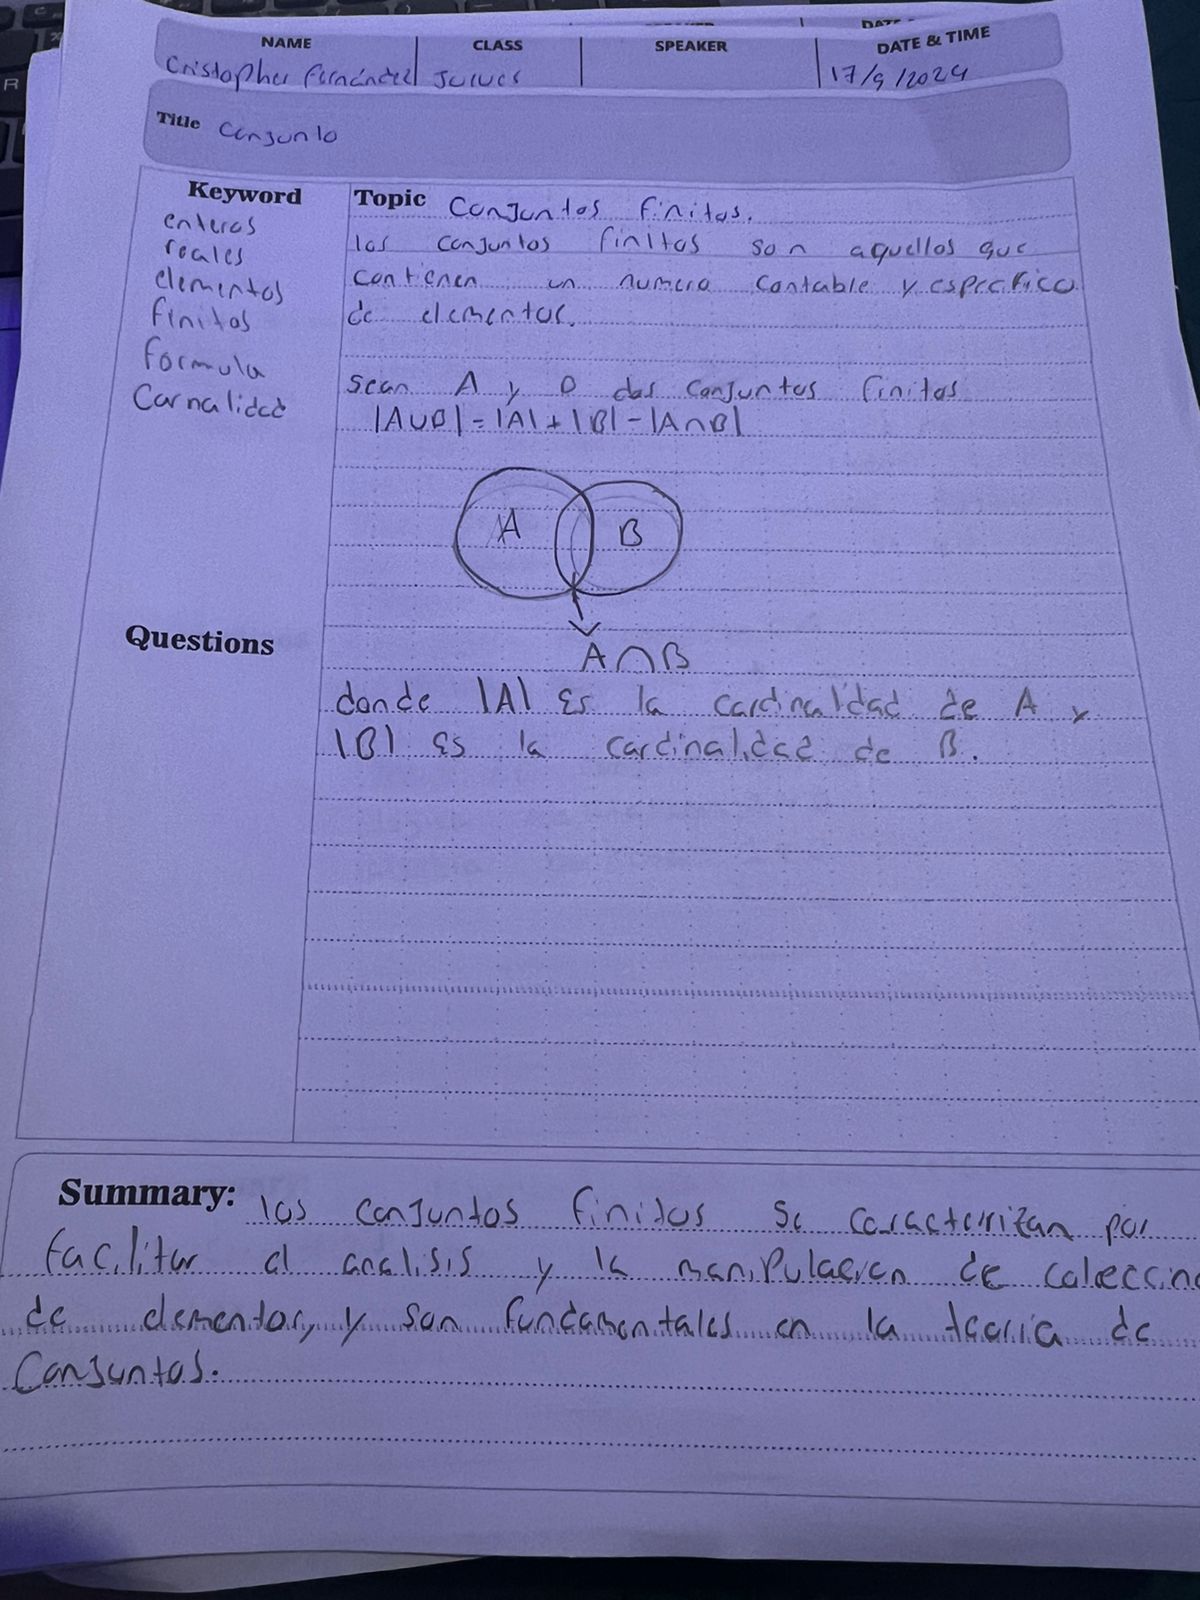 NAME
CLASS
SPEAKER
DATE & TIME
Cristopher Fernández
Jueves
17/9/2024
Title Conjunto
Keyword
enteros
reales
elementos
finitos
formula
Carnalidad
Topic Conjuntos finitos.
los conjuntos finitos son aquellos que
contienen un numero contable y especifico
de elementos.
sean A y B dos conjuntos finitos
|A∪B| = |A| + |B| - |A∩B|
A B
A∩B
donde |A| Es la cardinalidad de A y
|B| Es la cardinalidad de B.
Questions
Summary: los conjuntos finitos se caracterizan por
facilitar el analisis y la manipulacion de coleccino
de elementos, y son fundamentales en la teoria de
Conjuntos.